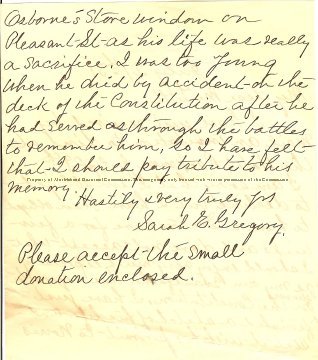 Osborne's Store window on
Pleasant St. as his life was really
a sacrifice, I was too young
when he died by accident on the
deck of the Constitution after he
had served as through the battles
to remember him, so I have felt
that I should pay tribute to his
memory.
Hastily & very truly yrs
Sarah E. Gregory.
Please accept the small
donation enclosed.